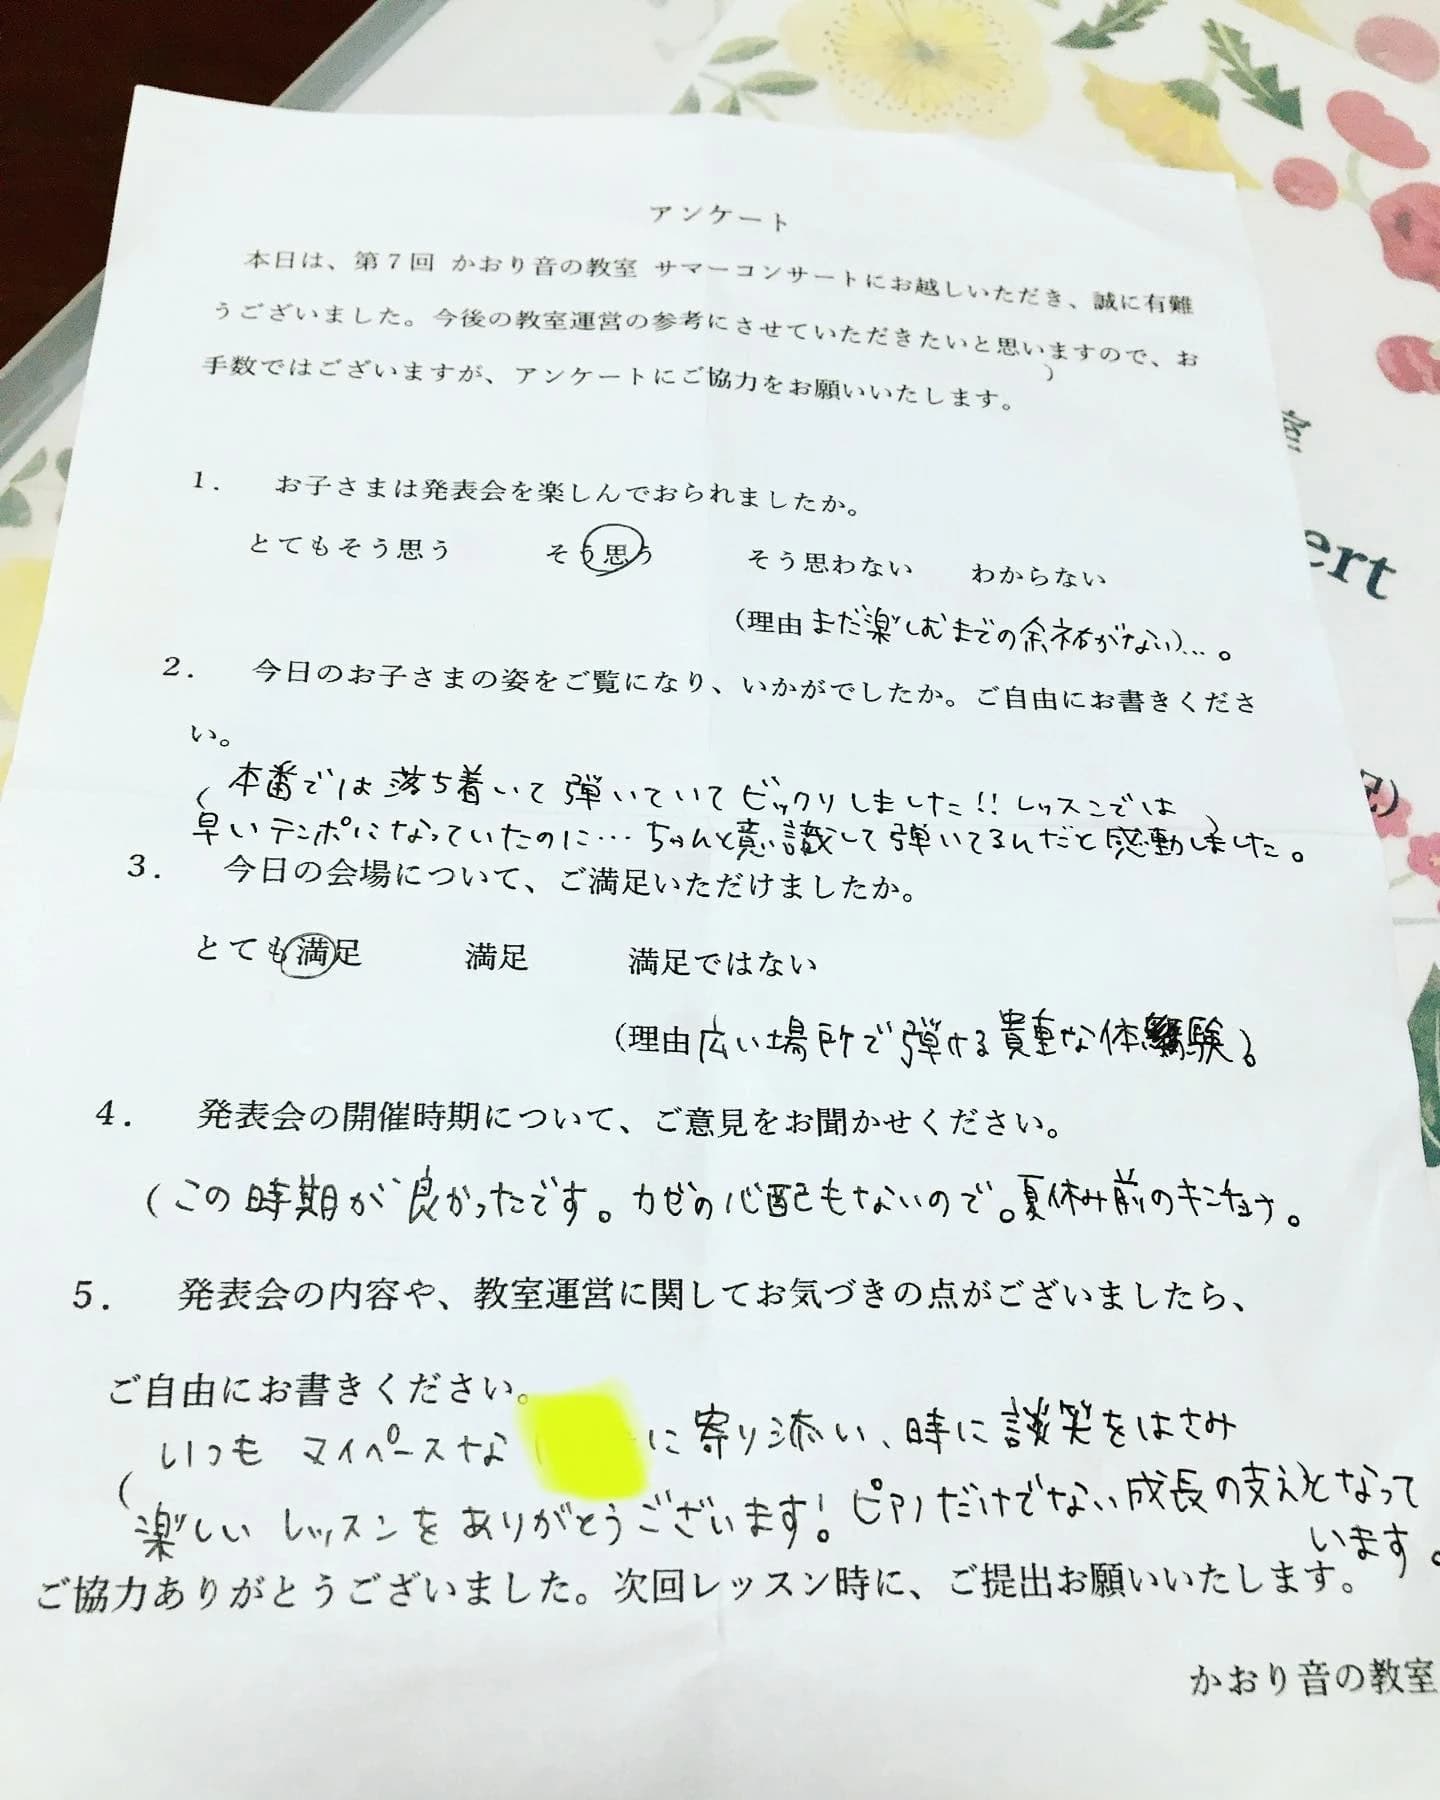 アンケート
本日は、第7回 かおり音の教室 サマーコンサートにお越しいただき、誠に有難
うございました。今後の教室運営の参考にさせていただきたいと思いますので、お
手数ではございますが、アンケートにご協力をお願いいたします。
1. お子さまは発表会を楽しんでおられましたか。
とてもそう思う そう思う そう思わない わからない
(理由 まだ楽しむまでの余裕がない)…。
2. 今日のお子さまの姿をご覧になり、いかがでしたか。ご自由にお書きくださ
い。
(本番では落ち着いて弾いていてビックリしました!! レッスンでは
早いテンポになっていたのに… ちゃんと意識して弾いてるんだと感動しました。)
3. 今日の会場について、ご満足いただけましたか。
とても満足 満足 満足ではない
(理由 広い場所で弾ける貴重な体験)。
4. 発表会の開催時期について、ご意見をお聞かせください。
(この時期が良かったです。カゼの心配もないので。夏休み前のキンチョウ。
5. 発表会の内容や、教室運営に関してお気づきの点がございましたら、
ご自由にお書きください。
(いつも マイペースな に寄り添い、時に談笑をはさみ
楽しい レッスンを ありがとうございます! ピアノだけでない成長の支えとなって
います。)
ご協力ありがとうございました。次回レッスン時に、ご提出お願いいたします。
かおり音の教室
ert